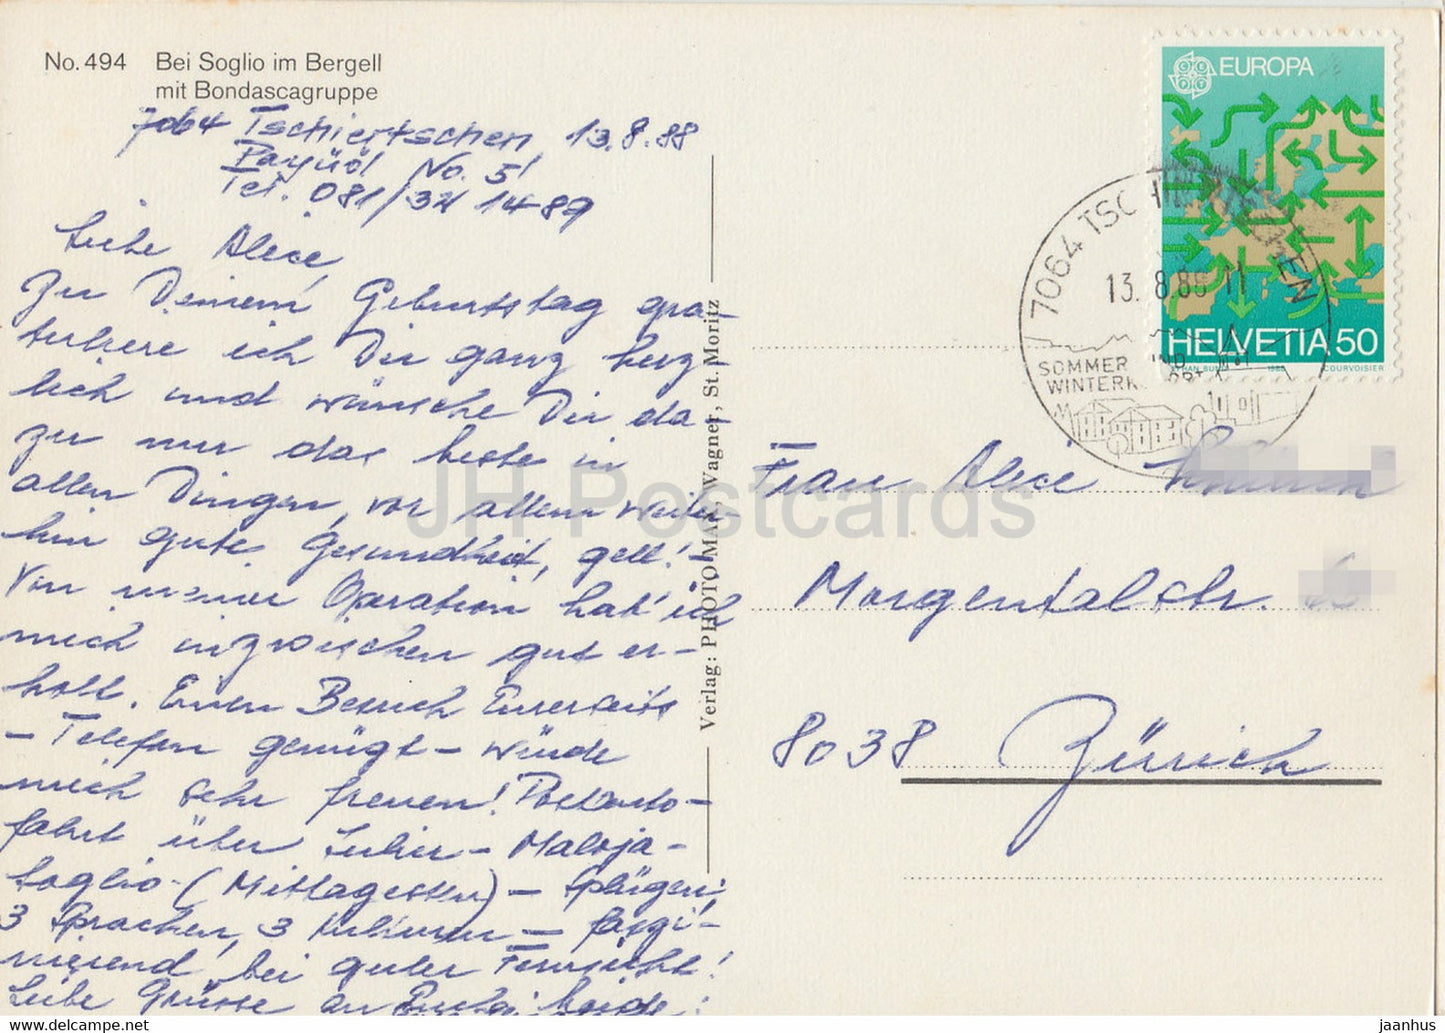 No. 494 Bei Soglio im Bergell
mit Bondascagruppe
7064 Tschiertschen, 13.8.88
No. 51
Tel. 081/ 1489
Liebe Alice,
Zu Deinem Geburtstag gra-
tuliere ich Dir ganz herz-
lich und wünsche Dir da-
zu nur das beste in
allen Dingen, vor allem weiter-
hin gute Gesundheit, gell! -
Von meiner Operation hab' ich
mich inzwischen gut er-
holt. Einen Besuch Eurerseits
- Telefon genügt - würde
mich sehr freuen! Postauto-
fahrt über Julier - Maloja -
Soglio - (Mittagessen) - Splügen;
3 Sprachen, 3 Kulturen - faszi-
nierend, bei guter Fernsicht!
Liebe Grüsse an Euch beide:
Verlag: PHOTO MAX Wagner, St. Moritz
EUROPA
HELVETIA 50
1988 COURVOISIER
7064 TSCHIERTSCHEN
13. 8.88 11
SOMMER UND
WINTERKURORT
Frau Alice
Morgentalstr.
8038 Zürich
JH Postcards
delcampe.net
jaanhus